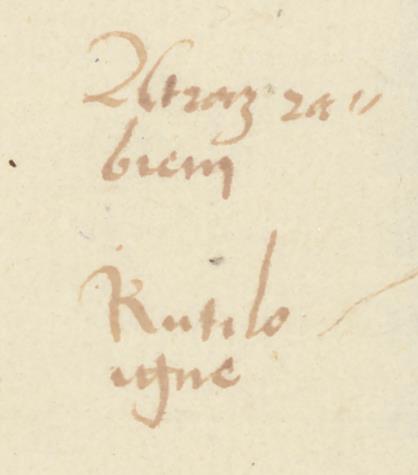 Atraz ra"
biem
Rutilo
igne